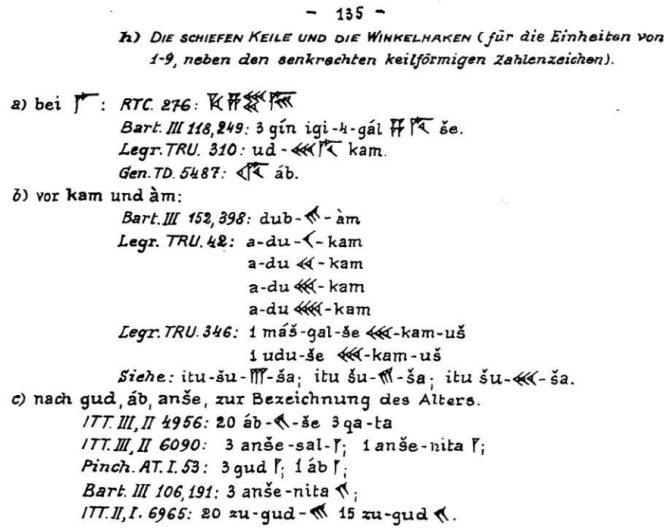 - 135 -
h) DIE SCHIEFEN KEILE UND DIE WINKELHAKEN (für die Einheiten von
1-9, neben den senkrechten keilförmigen Zahlenzeichen).
a) bei : RTC. 276:
Bart. III 118,249: 3 gín igi-4-gál še.
Legr. TRU. 310: ud- kam.
Gen. TD. 5487: áb.
b) vor kam und àm:
Bart. III 152,398: dub- - àm
Legr. TRU. 42: a-du- - kam
a-du - kam
a-du - kam
a-du - kam
Legr. TRU. 346: 1 máš-gal-še -kam-uš
1 udu-še -kam-uš
Siehe: itu-šu- -ša; itu šu- -ša; itu šu- - ša.
c) nach gud, áb, anše, zur Bezeichnung des Alters.
ITT. III, II 4956: 20 áb- -še 3 qa-ta
ITT. III, II 6090: 3 anše-sal- ; 1 anše-nita ;
Pinch. AT. I. 53: 3 gud ; 1 áb ;
Bart. III 106,191: 3 anše-nita ;
ITT. II, I. 6965: 20 zu-gud- 15 zu-gud .